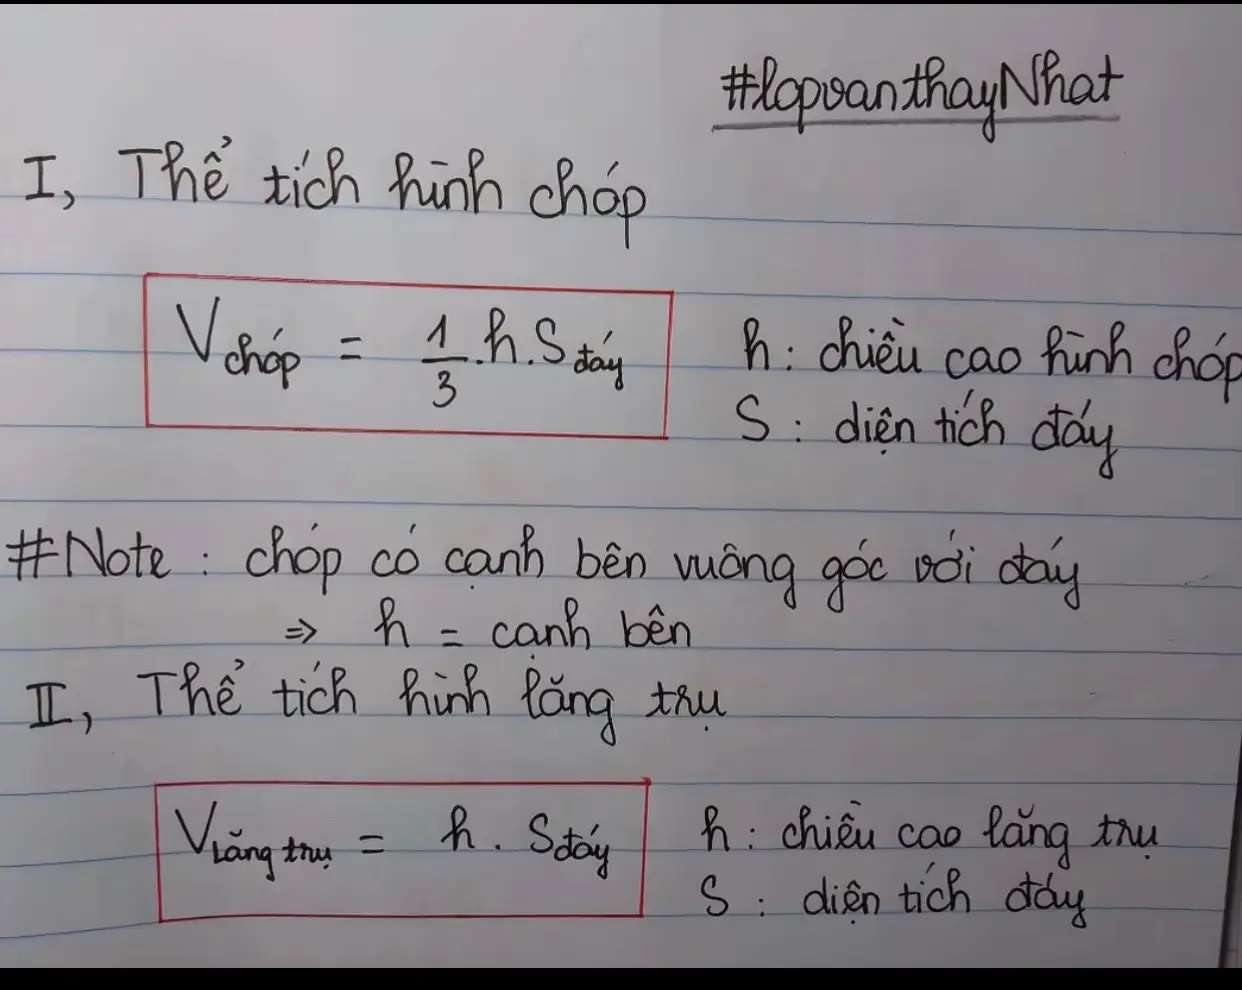 #lopvanthayNhat
I, Thể tích hình chóp
V chóp = 1/3 . h. S đáy
h : chiều cao hình chóp
S : diện tích đáy
#Note : chóp có cạnh bên vuông góc với đáy
⇒ h = cạnh bên
II, Thể tích hình lăng trụ
V lăng trụ = h . S đáy
h : chiều cao lăng trụ
S : diện tích đáy